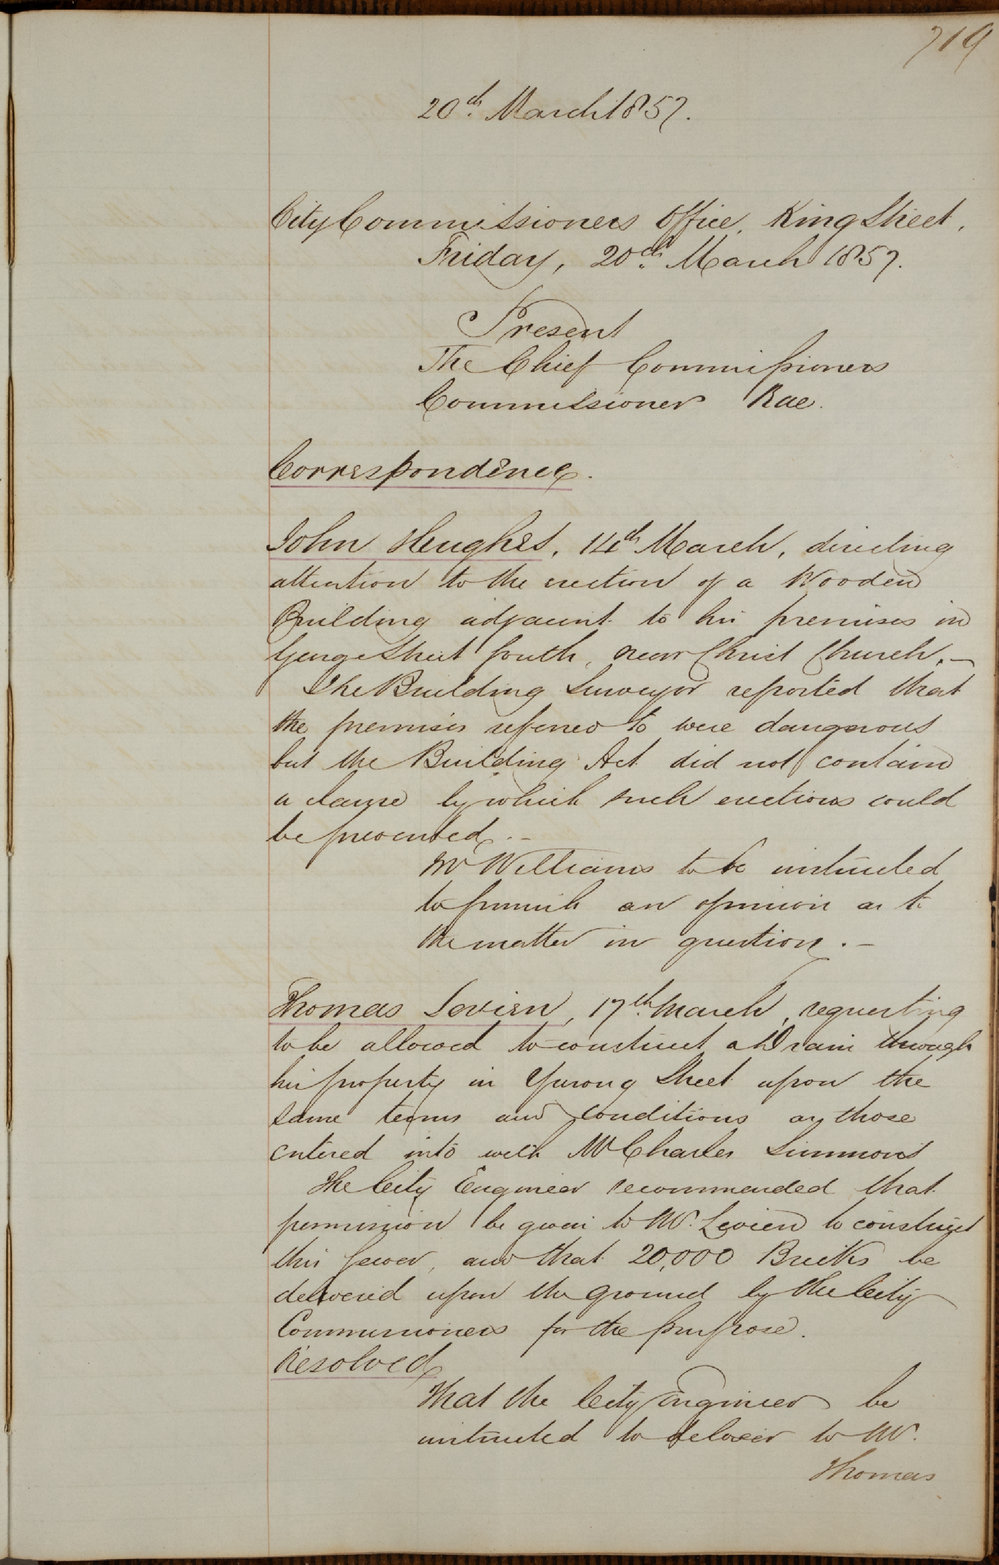 719
20th March 1857.
City Commissioners Office, King Street,
Friday, 20th March 1857.
Present
The Chief Commissioners
Commissioner Rae.
Correspondence.
John Hughes, 14th March, directing
attention to the erection of a Wooden
Building adjacent to his premises in
George Street South, near Christ Church.—
The Building Surveyor reported that
the premises referred to were dangerous
but the Building Act did not contain
a clause by which such erections could
be prevented.—
Mr Williams to be instructed
to furnish an opinion as to
the matter in question.—
Thomas Levien, 17th March, requesting
to be allowed to construct a Drain through
his property in Yurong Street upon the
same terms and conditions as those
entered into with Mr Charles Simmons
The City Engineer recommended that
permission be given to Mr. Levien to construct
this sewer, and that 20,000 Bricks be
delivered upon the ground by the City
Commissioners for the purpose.
Resolved
That the City Engineer be
instructed to deliver to Mr.
Thomas